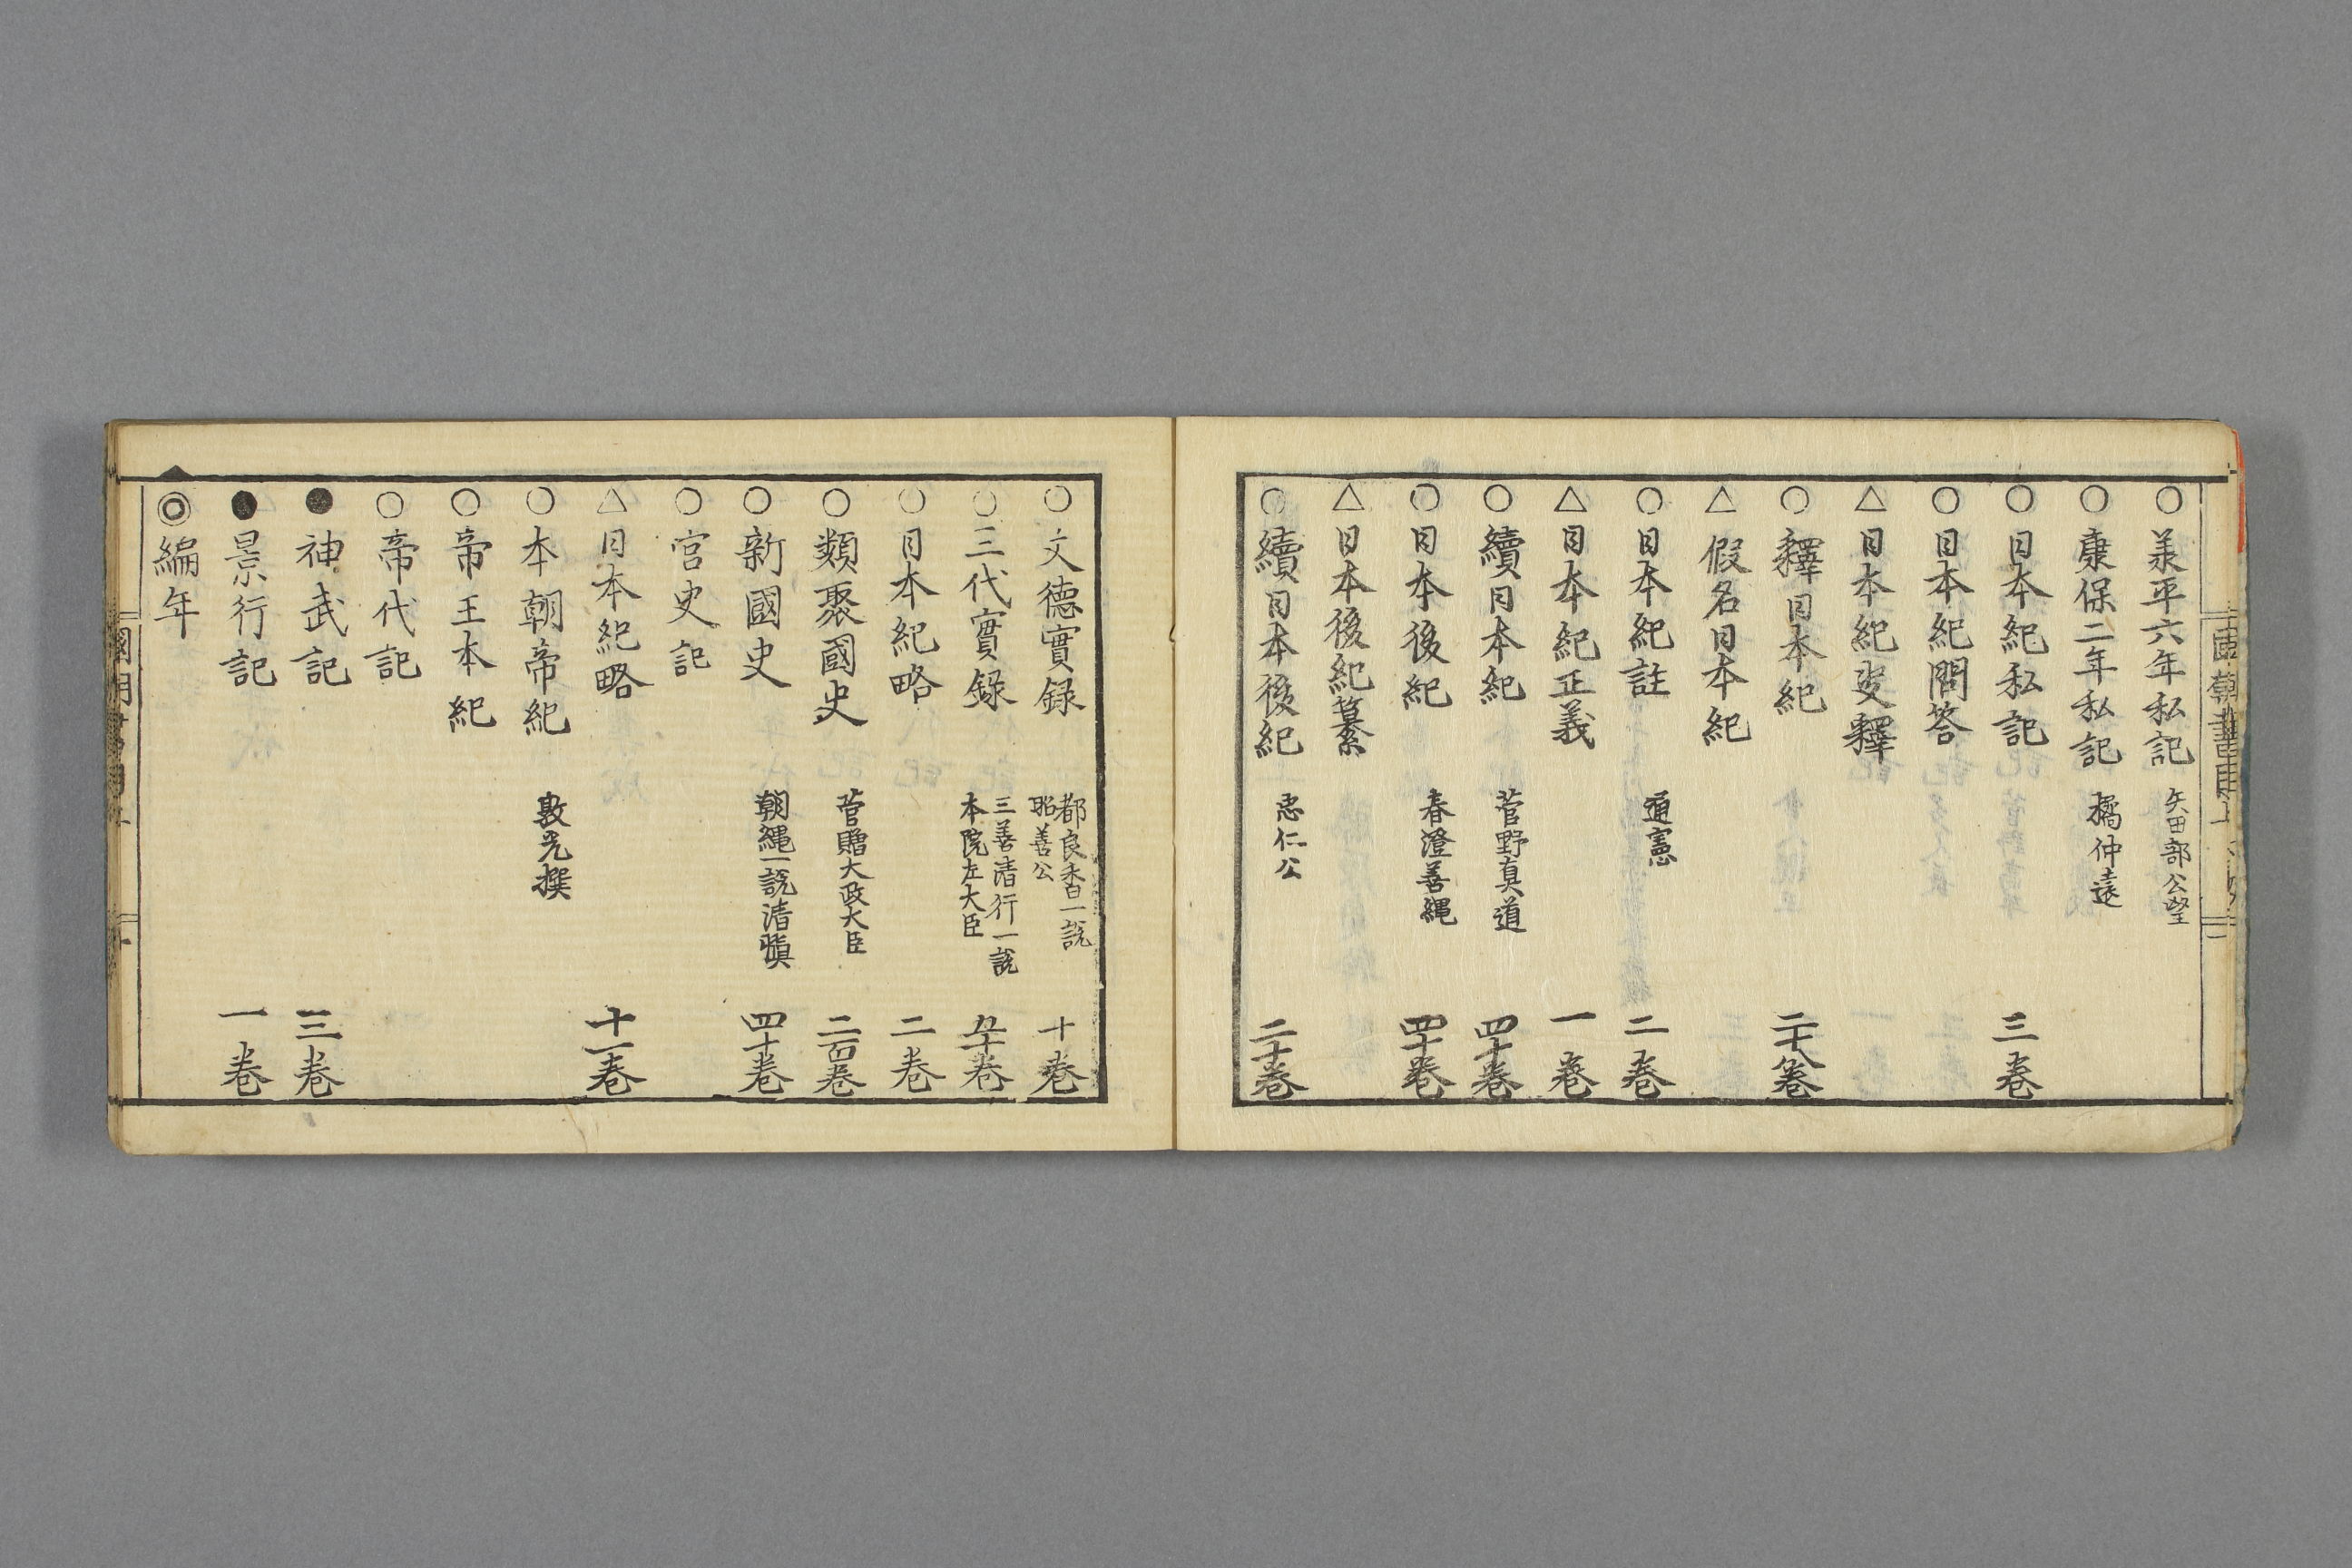 ○承平六年私記 矢田部公望
○康保二年私記 橘仲遠
○日本紀私記 三巻
○日本紀問答
△日本紀叓釋
○釋日本紀 二十八巻
△假名日本紀
○日本紀註 通憲 二巻
△日本紀正義 一巻
○續日本紀 菅野真道 四十巻
○日本後紀 春澄善縄 四十巻
△日本後紀纂
○續日本後紀 忠仁公 二十巻
○文德實録 都良香一説昭善公 十巻
○三代實録 三善清行一説本院左大臣 五十巻
○日本紀略 二巻
○類聚國史 菅贈大政大臣 二百巻
○新國史 朝縄一説清慎 四十巻
○宮史記
△日本紀略 十一巻
○本朝帝紀 敦光撰
○帝王本紀
○帝代記
●神武記 三巻
●景行記 一巻
◎編年